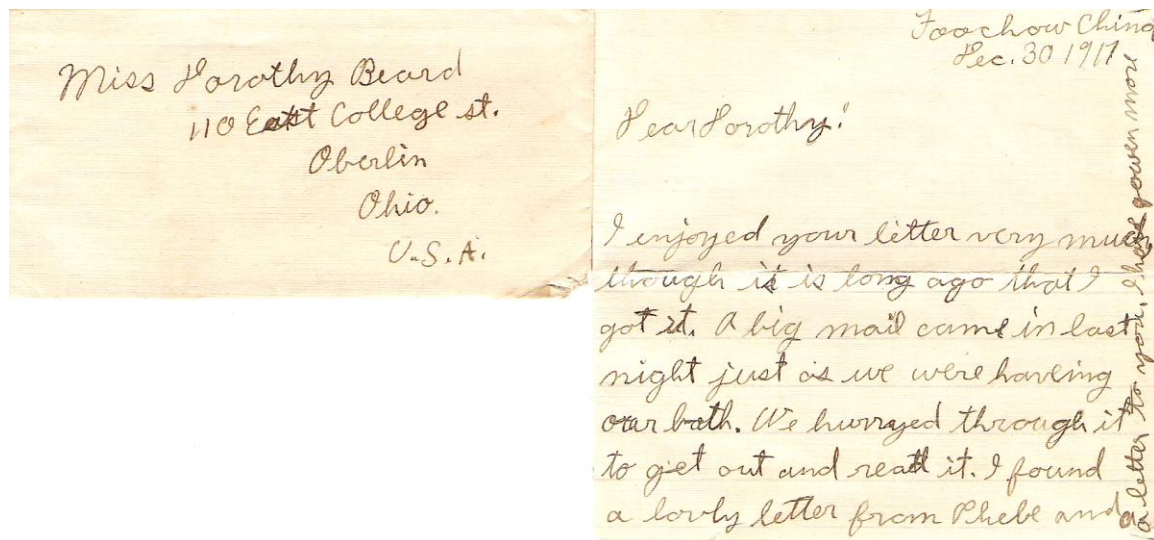 Miss Dorothy Beard
110 East College st.
Oberlin
Ohio.
U.S.A.
Foochow China
Dec. 30 1917
Dear Dorothy!
I enjoyed your letter very much
though it is long ago that I
got it. A big mail came in last
night just as we were haveing
our bath. We hurryed through it
to get out and read it. I found
a lovly letter from Phebe and
a letter to you. I hat gowen more